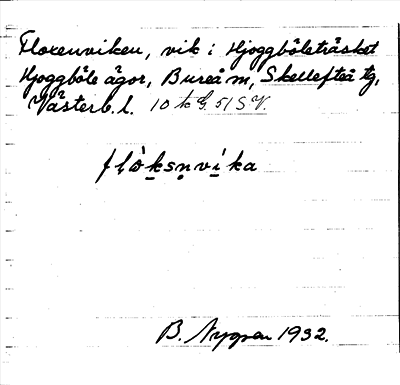 Floxenviken, vik i Hjoggböleträsket
Hjoggböle ägor, Bureå sn, Skellefteå tg,
Västerb. l. 10 k G. 51 S V.
flòksn̥víka
B. Nygren 1932.